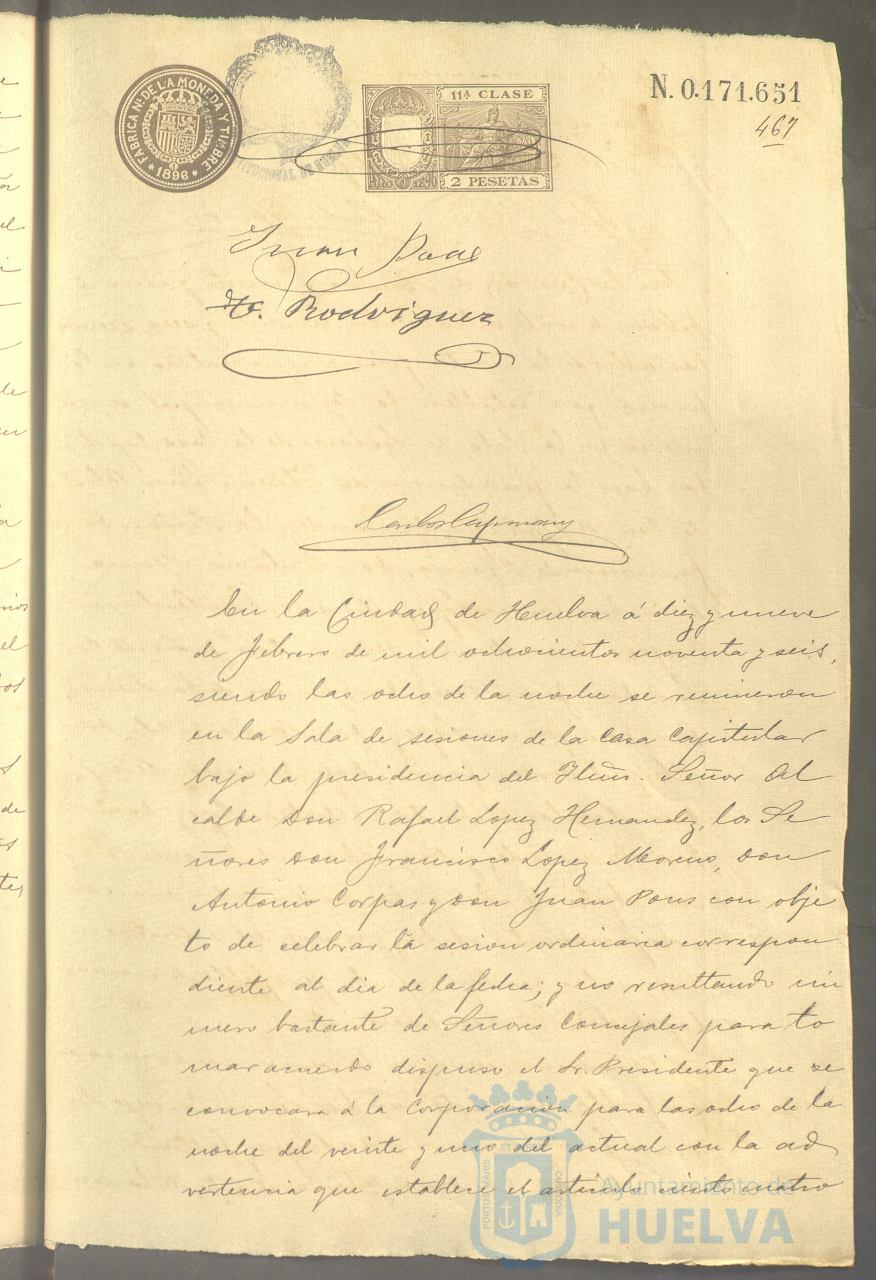 FABRICA Nl. DE LA MONEDA Y TIMBRE
* 1896 *
11ª CLASE
2 PESETAS
N. 0.171.651
467
Juan Pons
Rodriguez
Carlos Capmany
En la Ciudad de Huelva á diez y nueve
de Febrero de mil ochocientos noventa y seis,
siendo las ocho de la noche se reunieron
en la Sala de sesiones de la Casa Capitular
bajo la presidencia del Iltmo. Señor Al
calde Don Rafael Lopez Hernandez, los Se
ñores Don Francisco Lopez Moreno, Don
Antonio Corpas y Don Juan Pons con obje
to de celebrar la sesion ordinaria correspon
diente al dia de la fecha; y no resultando nú
mero bastante de Señores Concejales para to
mar acuerdo dispuso el Sr. Presidente que se
convocara á la Corporación para las ocho de la
noche del veinte y uno del actual con la ad
vertencia que establece el artículo ciento cuatro
PORTUS MARIS ET TERRÆ CUSTODIA
Ayuntamiento de
HUELVA